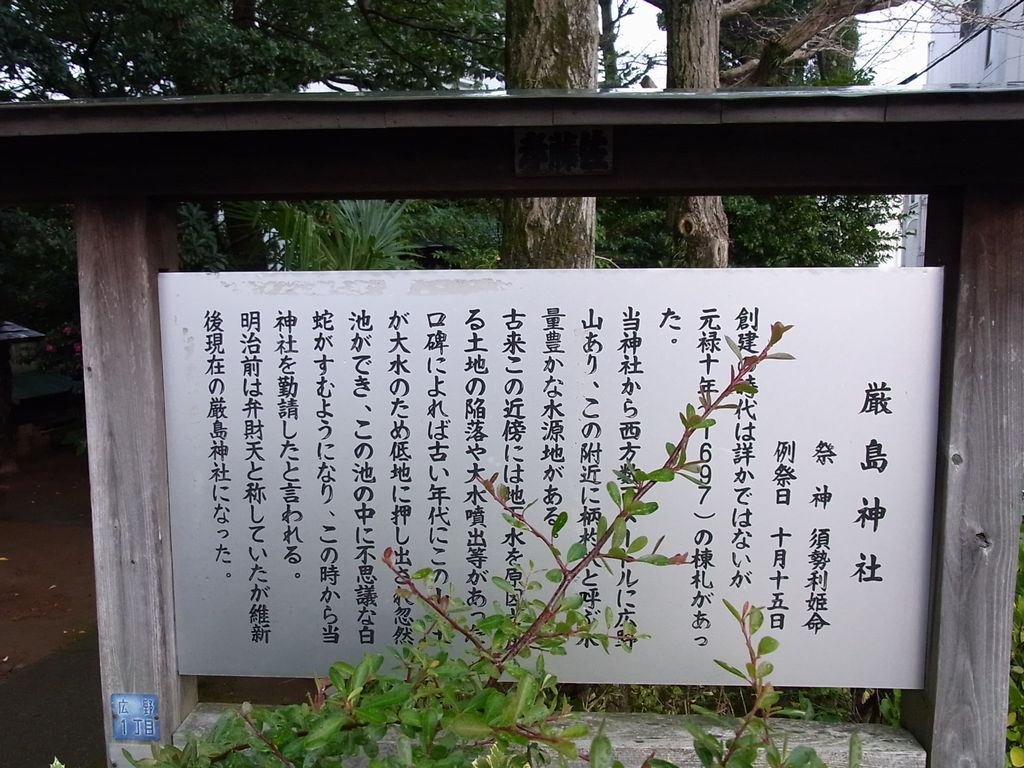 厳島神社
祭神 須勢利姫命
例祭日 十月十五日
創建 時代は詳かではないが
元禄十年 1697)の棟札があっ
た。
当神社から西方数 ルに広野
山あり、この附近に柄杓 と呼ぶ水
量豊かな水源地がある。
古来この近傍には地 水を原因
る土地の陥落や大水噴出等があった
口碑によれば古い年代にこの
が大水のため低地に押し出され忽然
池ができ、この池の中に不思議な白
蛇がすむようになり、この時から当
神社を勤請したと言われる。
明治前は弁財天と称していたが維新
後現在の厳島神社になった。
広野
1丁目